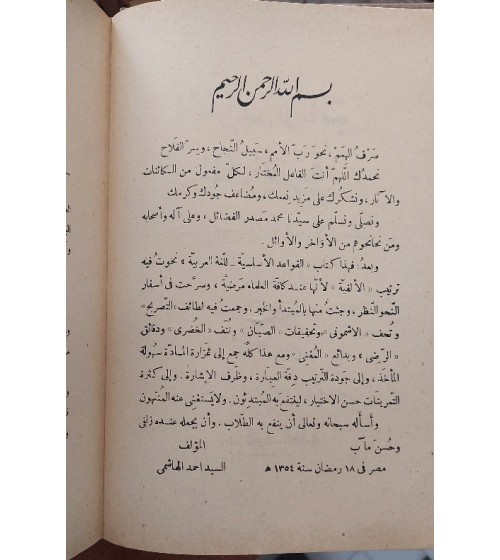 بسم الله الرحمن الرحيم
صَرْفُ الهِمَمِ، نحوَ رَبِّ الأمم، سَبيلُ النَّجاح، وسِرّ الفَلاح
نحمدُك اللَّهمّ أنتَ الفاعل المُختار، لكلّ مفعول من الكائنات
والآثار، ونشكرُك على مزيد نعمك، ومُضاعَف جُودك وكرمك
ونصلّى ونسلّم على سيّدنا محمد مصدر الفضائل، وعلى آله وأصحابه
ومَن نحا نحوهم من الأواخر والأوائل.
وبعدُ: فهذا كتاب «القواعد الأساسيّة للّغة العربية» نحوتُ فيه
ترتيب «الألفيّة» لأنها عند كافة العلماء مَرضيّة، وسرَّحت فى أسفار
النَّحو النَّظر، وجئتُ منها بالمُبتدأ والخبر. وجمعتُ فيه لطائف «التصريح»
وتُحف «الأشمونى» وتحقيقات «الصّبّان» ونُتَف «الخُضرى» ودقائق
«الرّضى» وبدائع «المُغنى» ومع هذا كلّه جمع إلى غزارة المادة سهولة
المأخذ، وإلى جودة الترتيب دِقّة العِبارة، وظرف الإشارة. وإلى كثرة
التمرينات حسن الاختيار، لينتفع به المبتدئون. ولا يستغنى عنه المُنتهون
وأسأله سبحانه وتعالى أن ينفع به الطّلاب. وأن يجعله عنده زلفى
وحُسنَ مآب
المؤلف
مصر فى ١٨ رمضان سنة ١٣٥٤ ه
السيد احمد الهاشمى